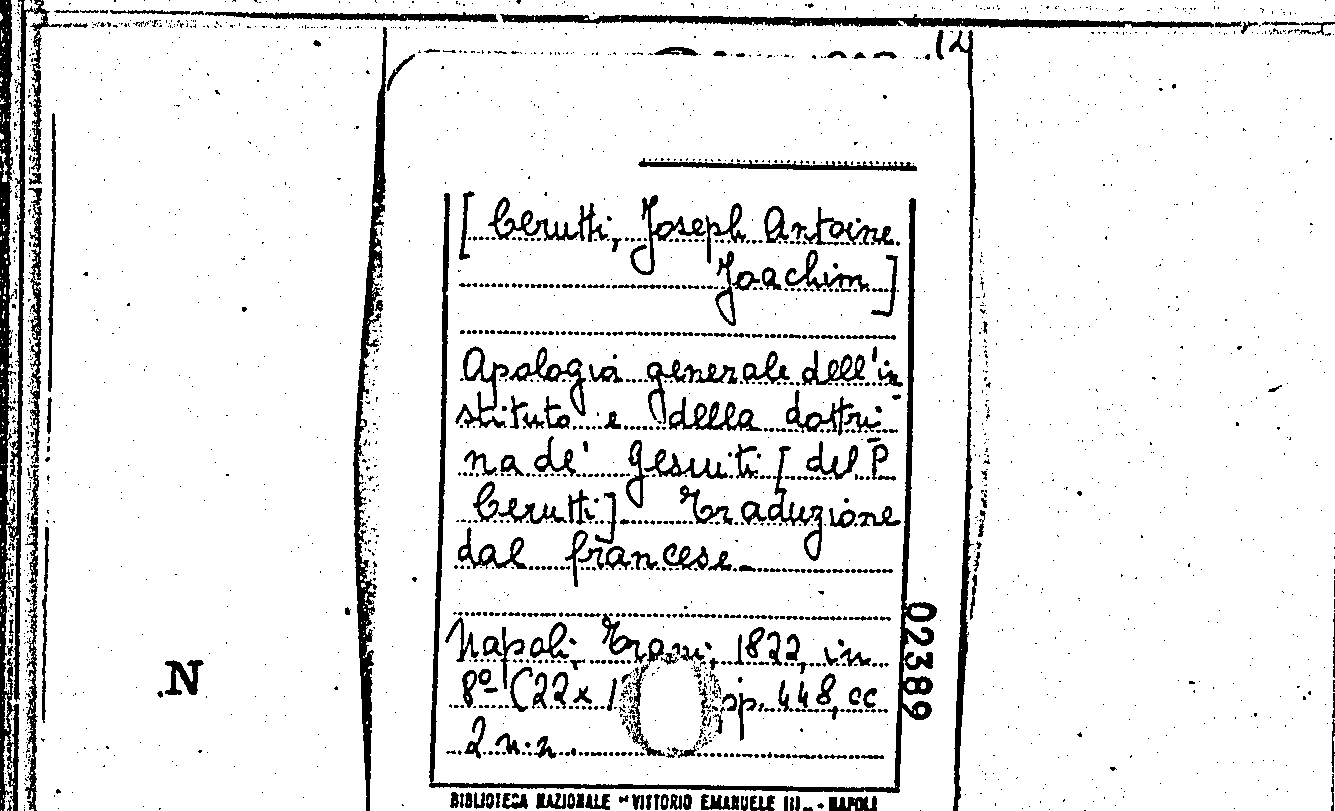 [ Cerutti, Joseph Antoine
Joachim ]
Apologia generale dell'in-
stituto e della dottri-
na de' Gesuiti [ del P.
Cerutti]. Traduzione
dal francese.
Napoli, Trani, 1822, in
8º- (22x pp. 448, cc
2 n.n.
02389
.N
BIBLIOTECA NAZIONALE "VITTORIO EMANUELE III" - NAPOLI